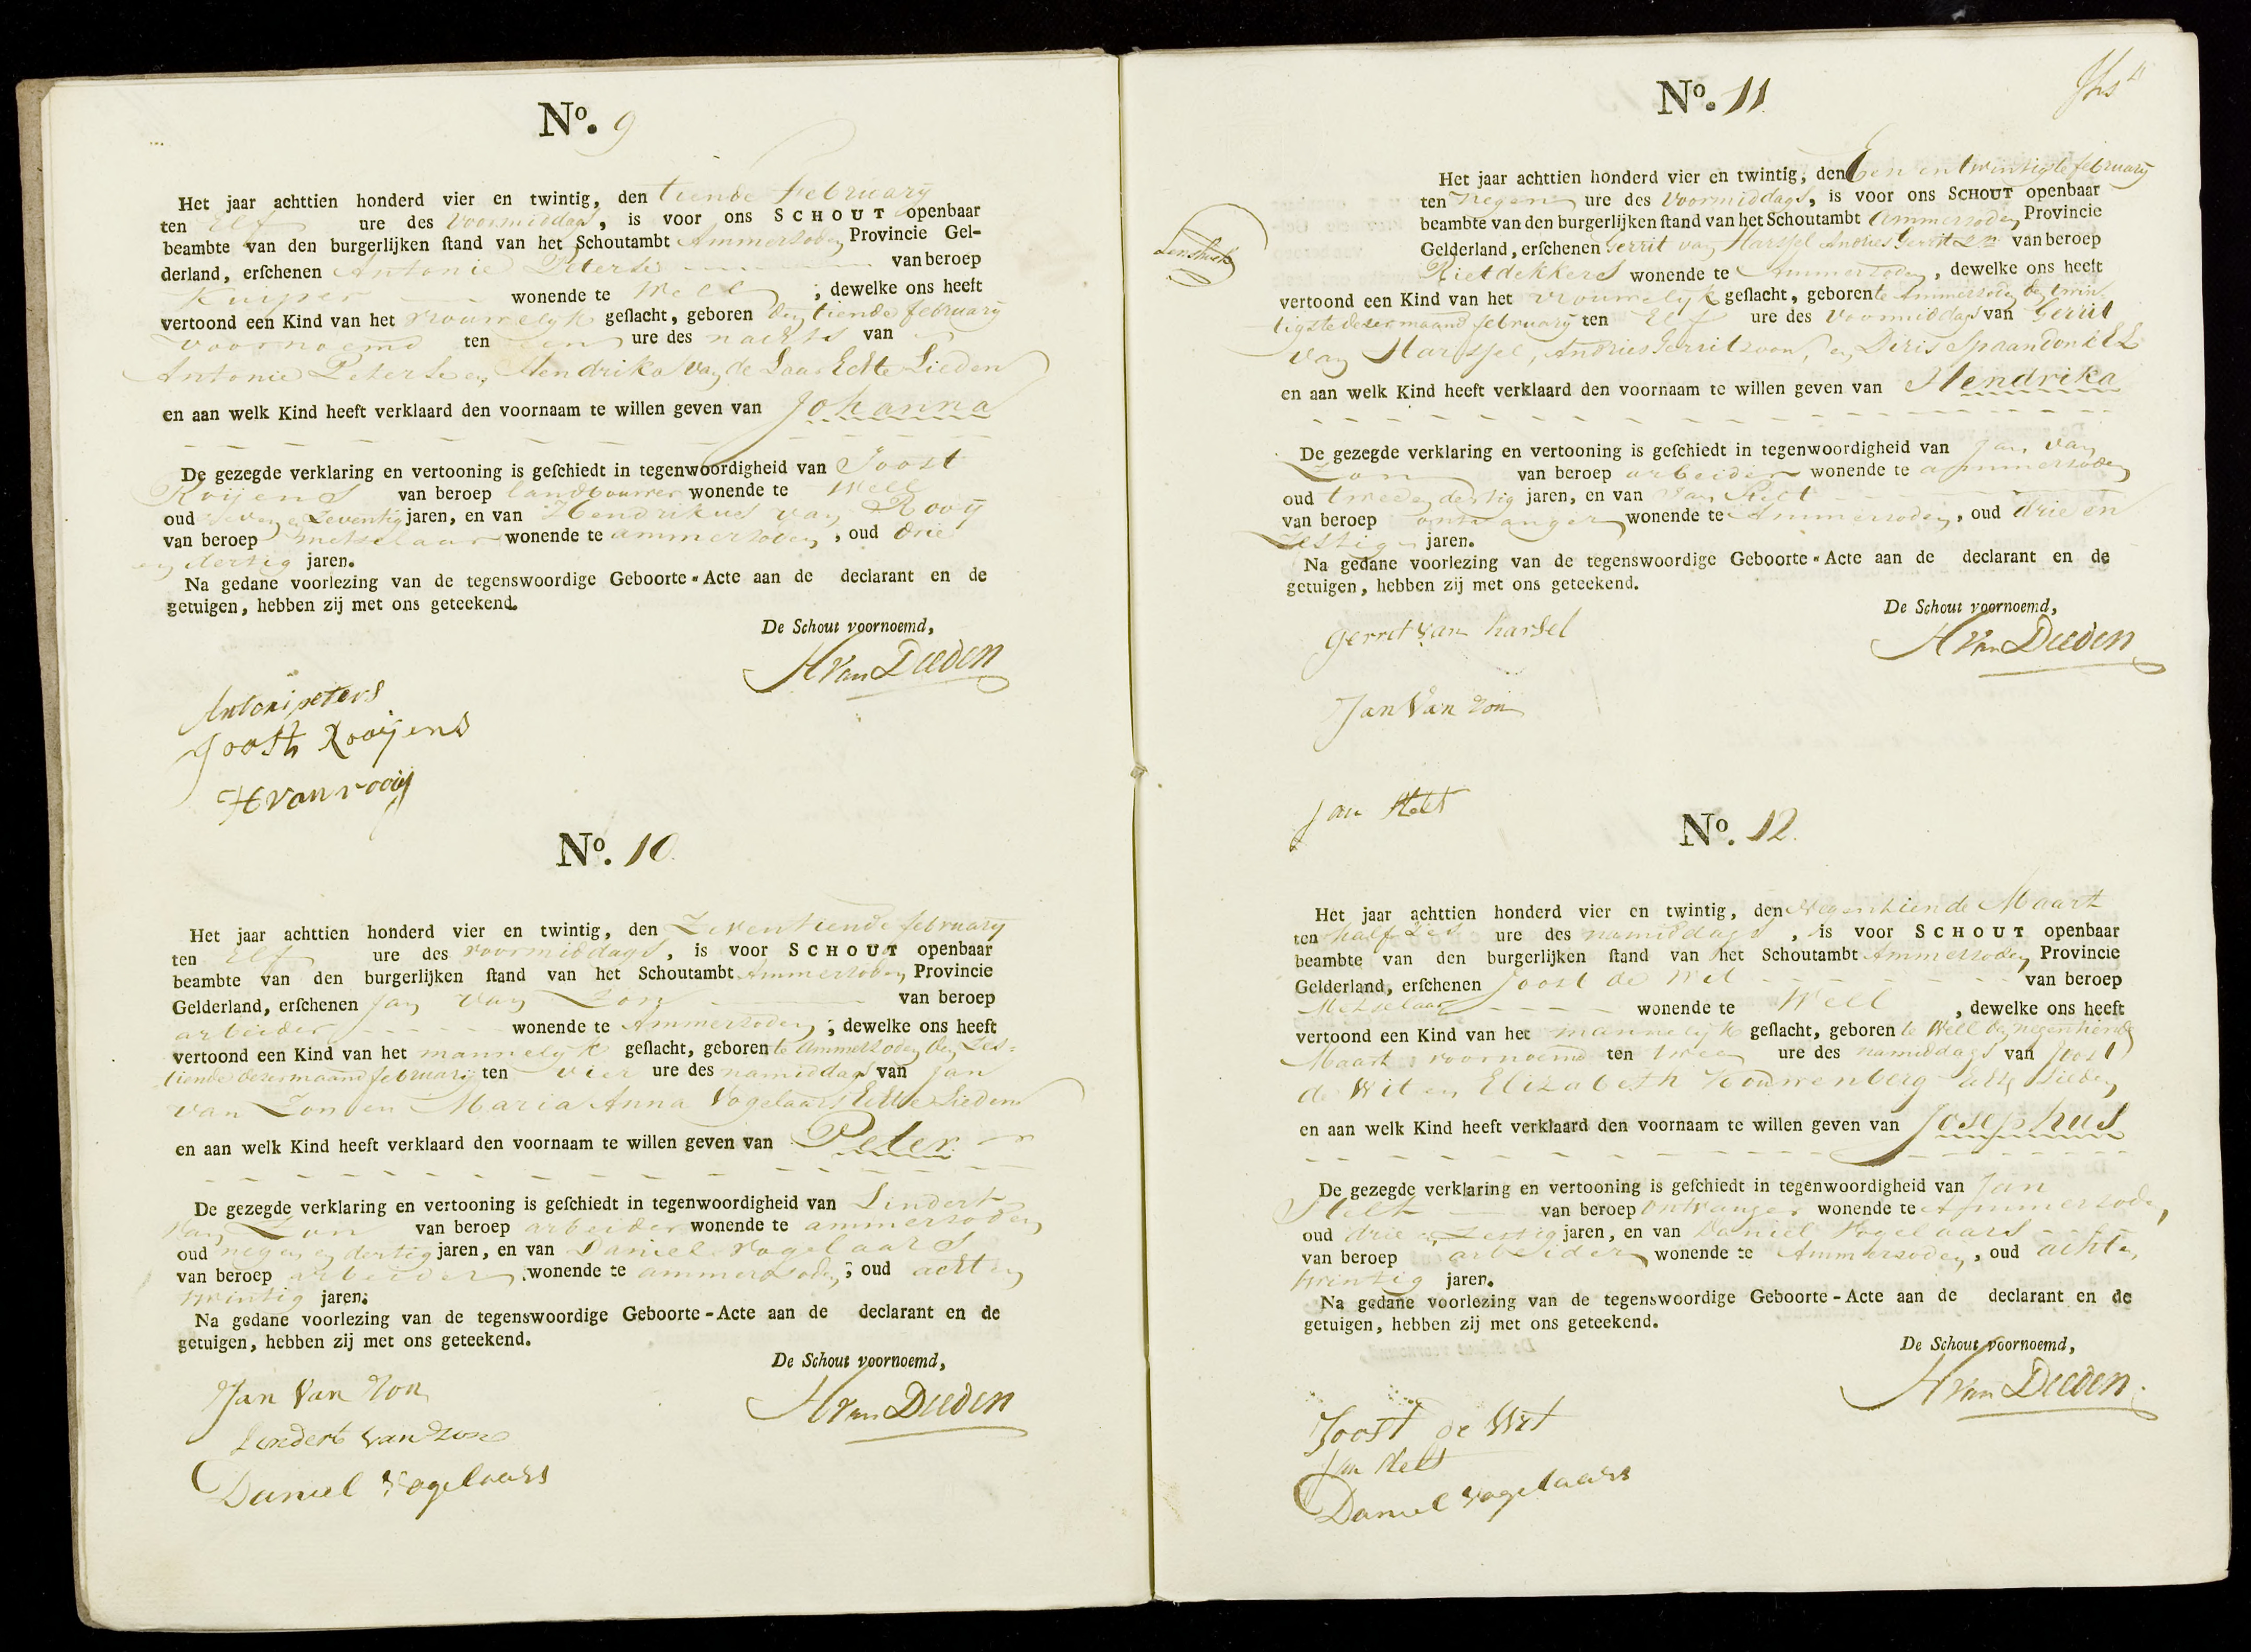 No. 9
Het jaar achttien honderd vier en twintig, den tiende February
ten Elf ure des voormiddags, is voor ons SCHOUT openbaar
beambte van den burgerlijken stand van het Schoutambt Ammersoden Provincie Gel-
derland, erschenen Antonie Peterse van beroep
Kuiper wonende te Well ; dewelke ons heeft
vertoond een Kind van het vrouwelyk geslacht, geboren den tiende february
voornoemd ten een ure des nachts van
Antonie Peterse en Hendrika van de Laar Echte Lieden
en aan welk Kind heeft verklaard den voornaam te willen geven van Johanna
De gezegde verklaring en vertooning is geschiedt in tegenwoordigheid van Joost
Roijens van beroep landbouwer wonende te Well
oud zeven en zeventig jaren, en van Hendrikus van Rooij
van beroep metselaar wonende te ammersoden, oud drie
en dertig jaren.
Na gedane voorlezing van de tegenswoordige Geboorte-Acte aan de declarant en de
getuigen, hebben zij met ons geteekend.
De Schout voornoemd,
H van Deeden
Antoni peters
Joost Rooijens
H van rooij
No. 10.
Het jaar achttien honderd vier en twintig, den Zeventiende february
ten Elf ure des voormiddags, is voor SCHOUT openbaar
beambte van den burgerlijken stand van het Schoutambt Ammersoden Provincie
Gelderland, erschenen Jan van Zon van beroep
arbeider wonende te Ammersoden ; dewelke ons heeft
vertoond een Kind van het mannelyk geslacht, geboren te Ammersoden den Zes-
tiende dezer maand february ten vier ure des namiddags van Jan
van Zon en Maria Anna Vogelaars Echte Lieden
en aan welk Kind heeft verklaard den voornaam te willen geven van Peter
De gezegde verklaring en vertooning is geschiedt in tegenwoordigheid van Lindert
van Zon van beroep arbeider wonende te ammersoden
oud negen en dertig jaren, en van Daniel Vogelaars
van beroep arbeider wonende te ammersoden; oud acht en
twintig jaren.
Na gedane voorlezing van de tegenswoordige Geboorte-Acte aan de declarant en de
getuigen, hebben zij met ons geteekend.
De Schout voornoemd,
H van Deeden
Jan Van Zon
Lendert van zon
Daniel Vogelaars
No. 11.
Het jaar achttien honderd vier en twintig, den Een en twintigste february
ten Negen ure des voormiddags, is voor ons SCHOUT openbaar
beambte van den burgerlijken stand van het Schoutambt Ammersoden Provincie
Gelderland, erschenen Gerrit van Harssel Andries Gerritzn van beroep
Rietdekkers wonende te Ammersoden, dewelke ons heeft
vertoond een Kind van het vrouwelyk geslacht, geboren te Ammersoden den twin
tigste dezer maand february ten Elf ure des voormiddags van Gerrit
van Harssel, Andries Gerritzoon, en Diris Spaandonk EL
en aan welk Kind heeft verklaard den voornaam te willen geven van Hendrika
De gezegde verklaring en vertooning is geschiedt in tegenwoordigheid van Jan van
Zon van beroep arbeider wonende te ammersoden
oud twee en dertig jaren, en van Jan Stelt
van beroep ontvanger wonende te Ammersoden, oud drie en
Zestig jaren.
Na gedane voorlezing van de tegenswoordige Geboorte-Acte aan de declarant en de
getuigen, hebben zij met ons geteekend.
De Schout voornoemd,
H van Deeden
gerrit van harsel
Jan Van Zon
Jan Stelt
No. 12.
Het jaar achttien honderd vier en twintig, den Negentiende Maart
ten half Zes ure des namiddags, is voor SCHOUT openbaar
beambte van den burgerlijken stand van het Schoutambt Ammersoden Provincie
Gelderland, erschenen Joost de Wit van beroep
Metselaar wonende te Well, dewelke ons heeft
vertoond een Kind van het mannelyk geslacht, geboren te Well den negentiende
Maart voornoemd ten twee ure des namiddags van Joost
de Wit en Elizabeth Kouwenberg Echte Lieden
en aan welk Kind heeft verklaard den voornaam te willen geven van Josephus
De gezegde verklaring en vertooning is geschiedt in tegenwoordigheid van Jan
Stelt van beroep Ontvanger wonende te Ammersoden,
oud drie en Zestig jaren, en van Daniel Vogelaars
van beroep arbeider wonende te Ammersoden, oud acht en
twintig jaren.
Na gedane voorlezing van de tegenswoordige Geboorte-Acte aan de declarant en de
getuigen, hebben zij met ons geteekend.
De Schout voornoemd,
H van Deeden.
Joost de Wit
Jan Stelt
Daniel Vogelaars